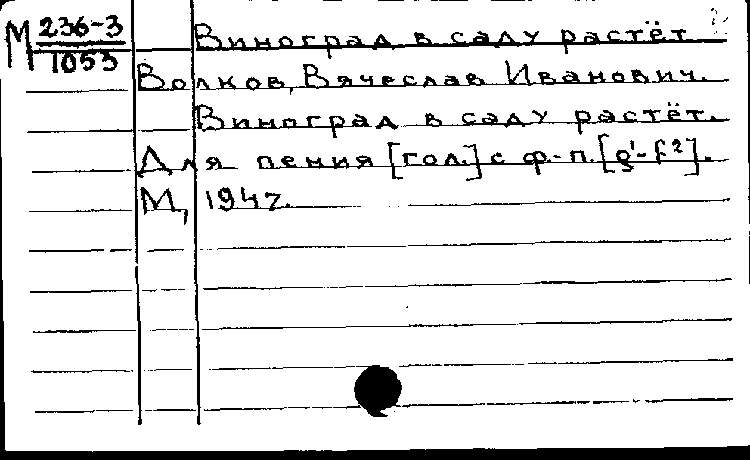 М 236-3
1053
Виноград в саду растёт
Волков, Вячеслав Иванович.
Виноград в саду растёт.
Для пения [гол.] с ф.-п. [g¹-f²].
М, 1947.